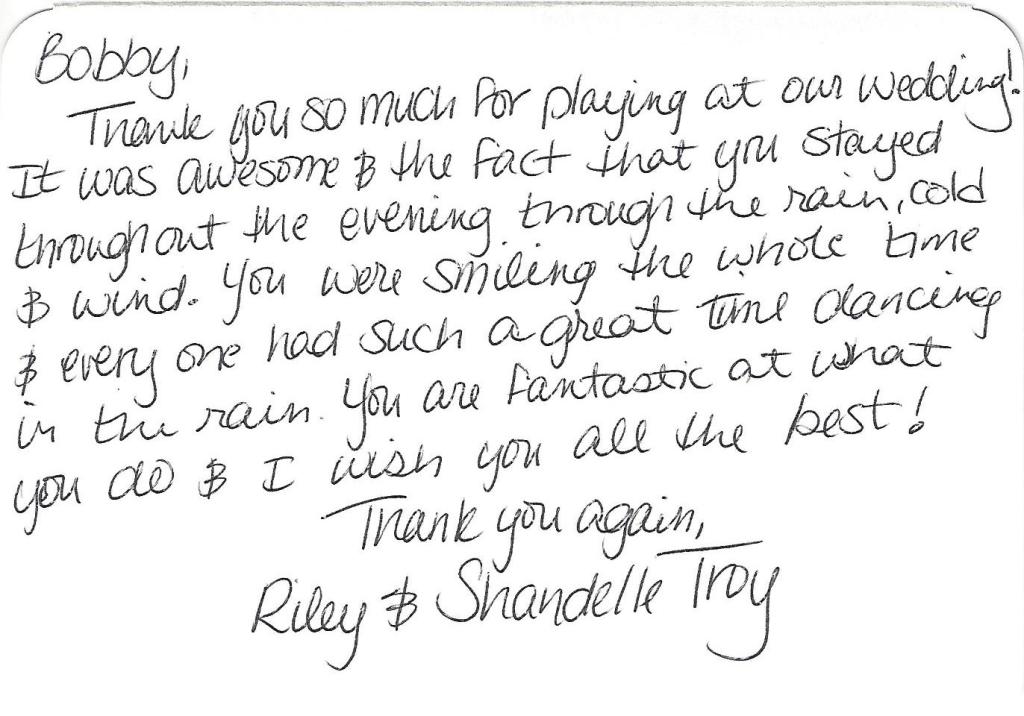 Bobby,
Thank you so much for playing at our wedding!
It was awesome & the fact that you stayed
throughout the evening through the rain, cold
& wind. You were smiling the whole time
& every one had such a great time dancing
in the rain. You are fantastic at what
you do & I wish you all the best!
Thank you again,
Riley & Shandelle Troy